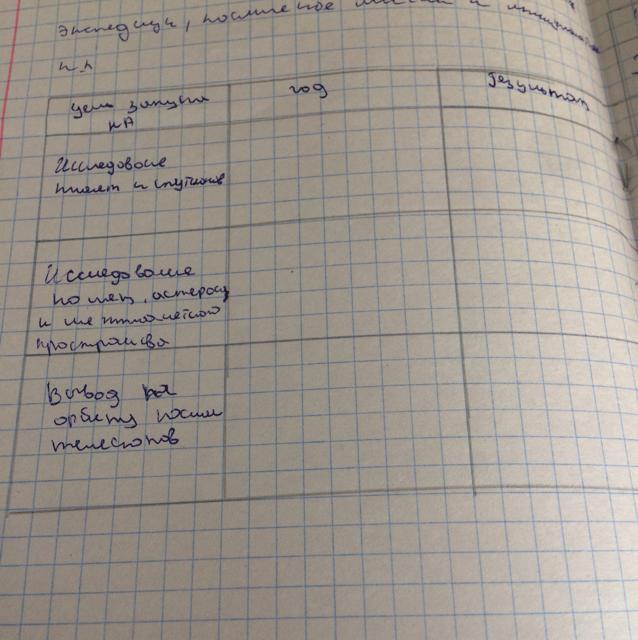 экспедиции, космические
цель запуска
КА
год
результат
Исследование
планет и спутников
Исследование
комет, астероид
и межпланетного
пространства
Вывод на
орбиту косми
телескопов